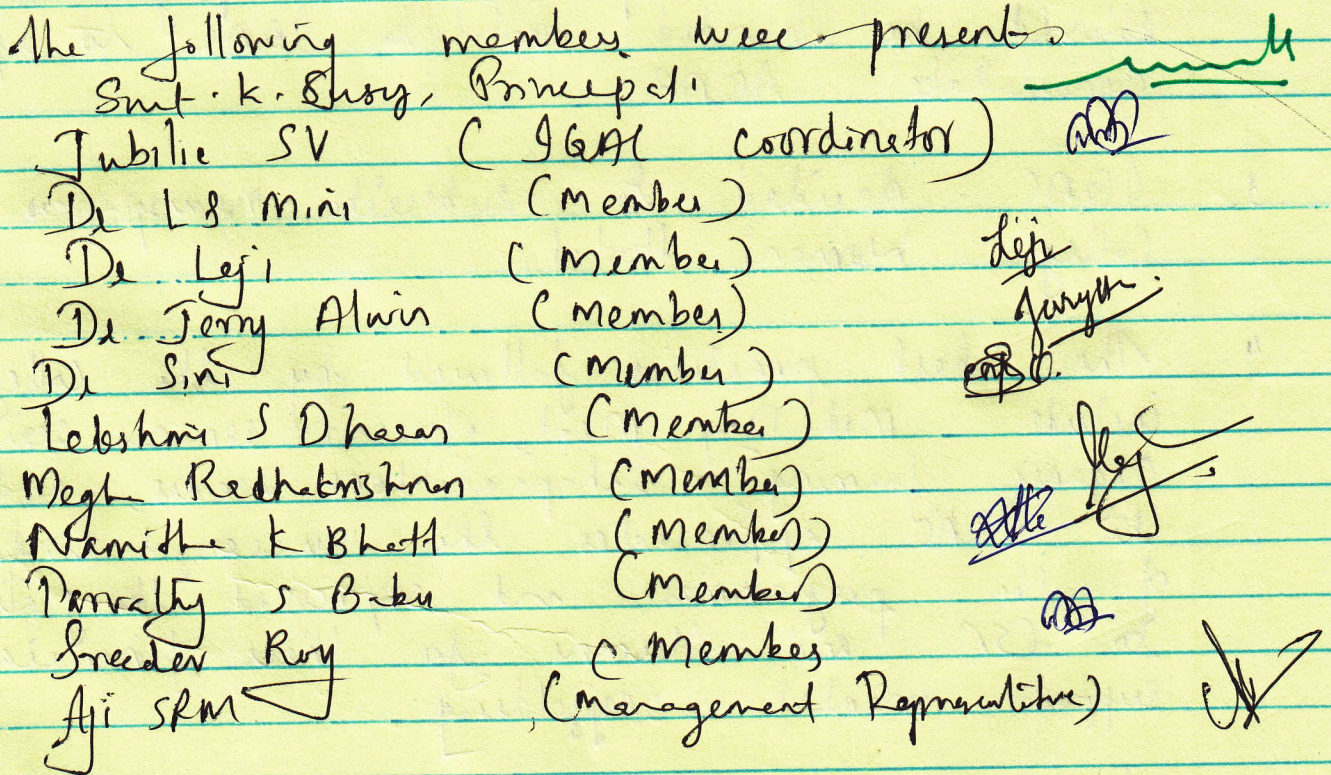 The following members were present.
Smt. K. Susy, Principal.
Jubilie SV (IQAC coordinator)
Dr L S Mini (Member)
Dr Leji (Member) Leji
Dr Jerry Alwin (Member)
Dr Sini (Member)
Lekshmi S Dharan (Member)
Megha Radhakrishnan (Member)
Namitha K Bhatt (Member)
Parvathy S Babu (Member)
Sreedev Roy (Member
Aji SRM (Management Representitive)